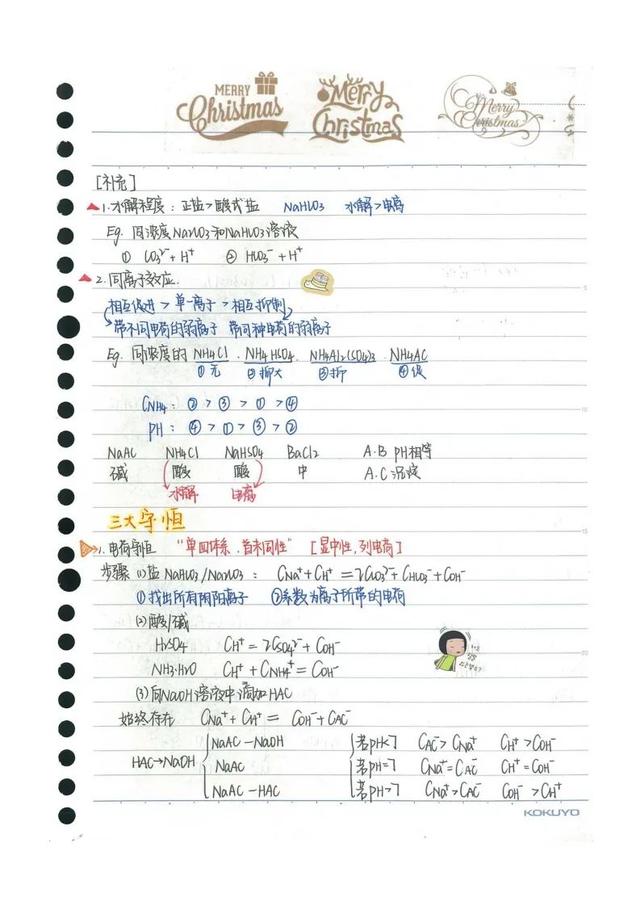 MERRY Christmas
Merry Christmas
Merry Christmas
[补充]
1. 水解程度：正盐>酸式盐 NaHCO3 水解>电离
Eg. 同浓度Na2CO3和NaHCO3溶液
① CO3²⁻+H⁺ ② HCO3⁻+H⁺
2. 同离子效应.
相互促进 > 单一离子 > 相互抑制
带不同电荷的弱离子 带同种电荷的弱离子
Eg. 同浓度的 NH4Cl . NH4HSO4 . NH4Al2(SO4)3 NH4AC
①无 ②抑大 ③抑 ④促
CNH4: ②>③>①>④
PH: ④>①>③>②
NaAC NH4Cl NaHSO4 BaCl2 A.B PH相等
碱 酸 酸 中 A.C 沉淀
水解 电离
三大守恒
1. 电荷守恒 "单四体系.首和同性" [显中性,列电荷]
步骤 (1)盐 NaHCO3/Na2CO3: CNa⁺+CH⁺=2CCO3²⁻+CHCO3⁻+COH⁻
①找出所有阴阳离子 ②系数为离子所带的电荷
(2)酸/碱
H2SO4 CH⁺=2CSO4²⁻+COH⁻
NH3·H2O CH⁺+CNH4⁺=COH⁻
(3)向NaOH溶液中滴加HAC
始终存在 CNa⁺+CH⁺= COH⁻+CAC⁻
HAC→NaOH
NaAC-NaOH 若pH<7 CAC⁻>CNa⁺ CH⁺>COH⁻
NaAC 若pH=7 CNa⁺=CAC⁻ CH⁺=COH⁻
NaAC-HAC 若pH>7 CNa⁺>CAC⁻ COH⁻>CH⁺
KOKUYO